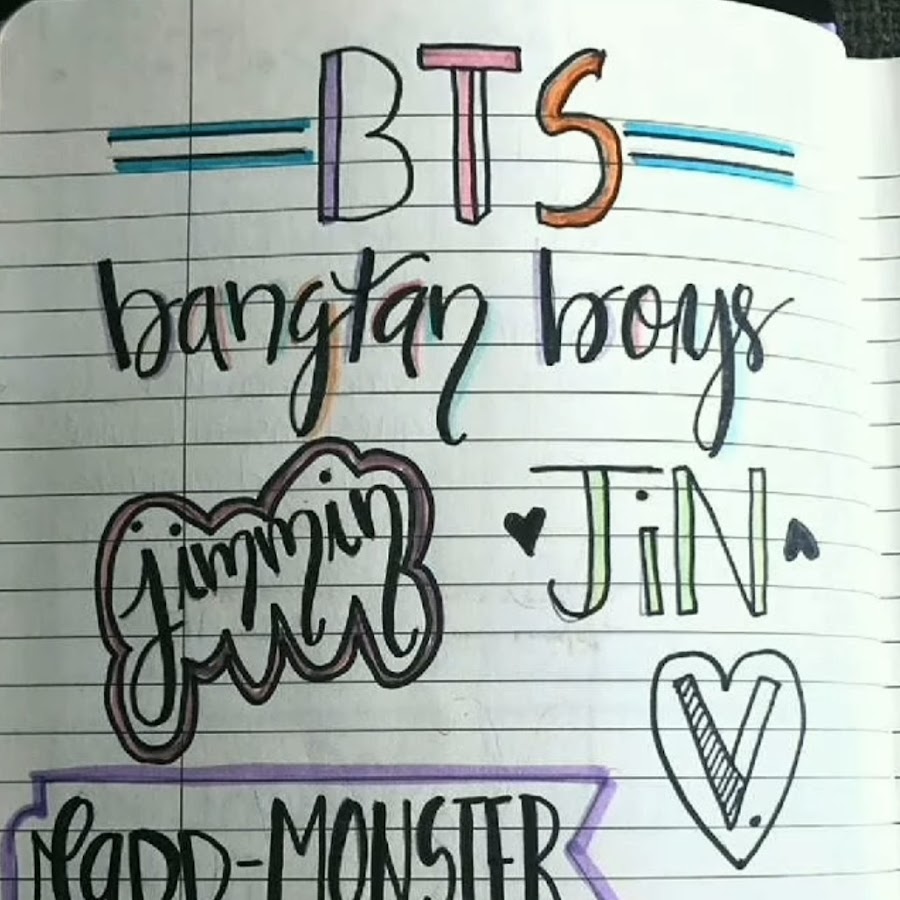 BTS
bangtan boys
jimmin
JiN
V.
RaPP-MONSTER